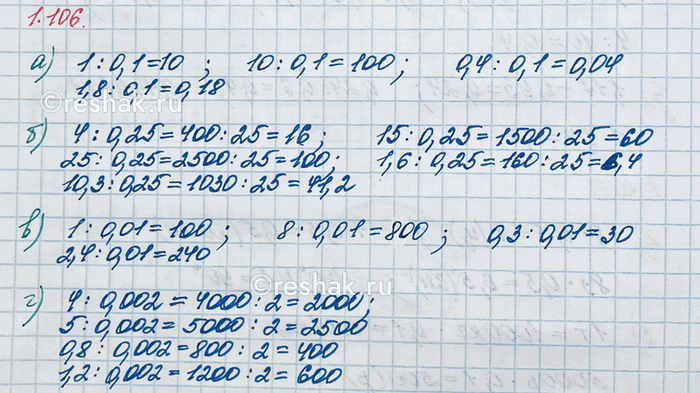 1.106.
а) 1 : 0,1=10 ; 10 : 0,1=100 ; 0,4 : 0,1=0,04
1,8 : 0,1=0,18
б) 4 : 0,25=400 : 25=16 ; 15 : 0,25=1500 : 25=60
25 : 0,25=2500 : 25=100 ; 1,6 : 0,25=160 : 25=6,4
10,3 : 0,25=1030 : 25=41,2
в) 1 : 0,01=100 ; 8 : 0,01=800 ; 0,3 : 0,01=30
2,4 : 0,01=240
г) 4 : 0,002=4000 : 2=2000 ;
5 : 0,002=5000 : 2=2500
0,8 : 0,002=800 : 2=400
1,2 : 0,002=1200 : 2=600
©reshak.ru
©reshak.ru